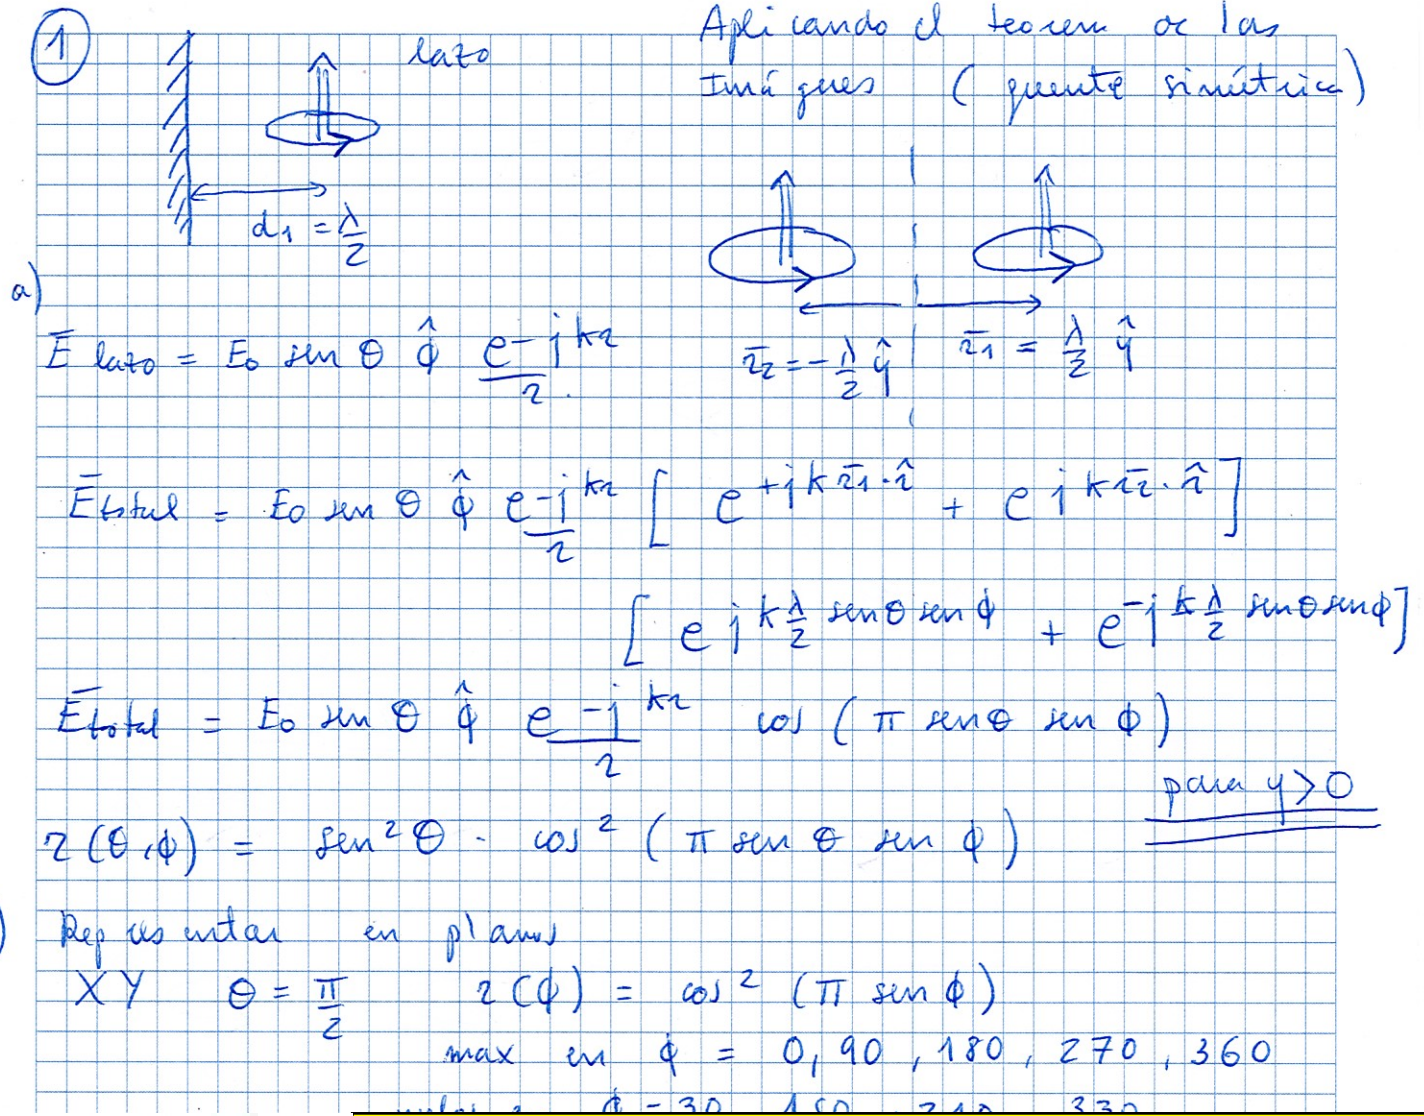 1
lazo
Aplicando el teorem de las
Imágnes (fuente simétrica)
d₁ = λ/2
a)
Ē lazo = E₀ sen θ φ̂ e^{-jkr}/r
r̄₂ = -λ/2 ŷ
r̄₁ = λ/2 ŷ
Ētotal = E₀ sen θ φ̂ e^{-jkr}/r [ e^{+jk r̄₁·r̂} + e^{jk r̄₂·r̂} ]
[ e^{jk λ/2 senθ senφ} + e^{-jk λ/2 senθ senφ} ]
Ētotal = E₀ sen θ φ̂ e^{-jkr}/r cos (π senθ sen φ)
para y>0
r(θ,φ) = sen²θ · cos² (π sen θ sen φ)
)
Representar en planos
XY θ = π/2 r(φ) = cos² (π sen φ)
max en φ = 0, 90, 180, 270, 360
φ = 30 150 210 330